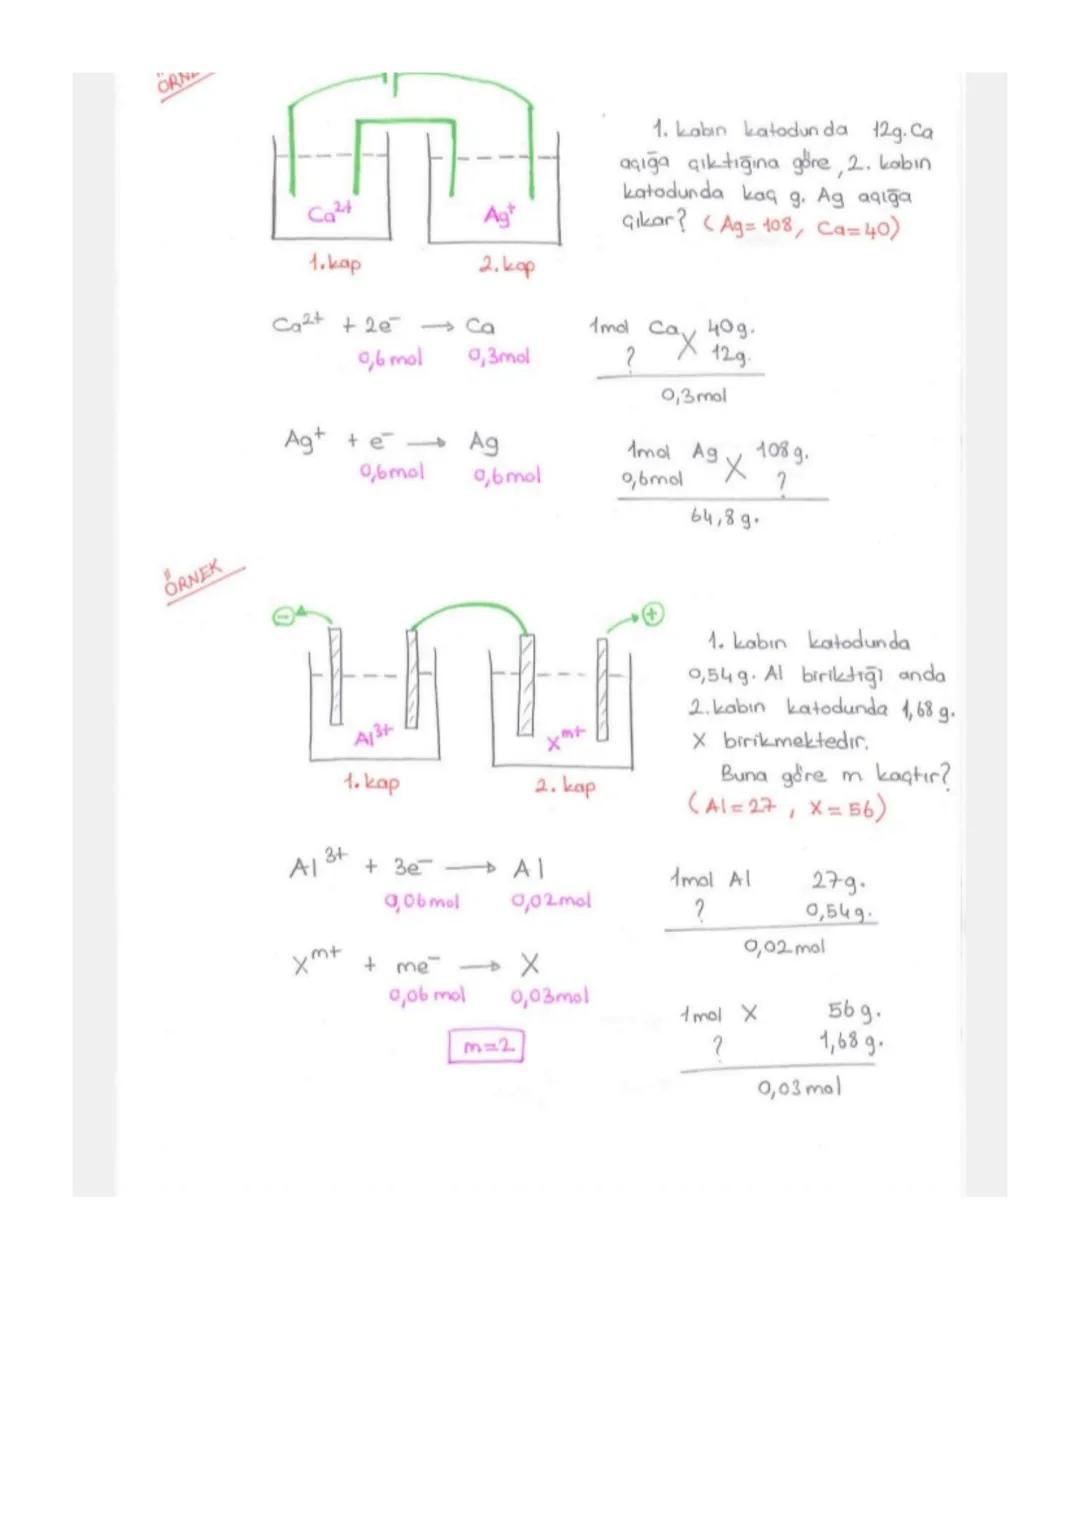 1. kabın katodunda 12g. Ca
açığa çıktığına göre, 2. kabın
katodunda kaç g. Ag açığa
çıkar? (Ag=108, Ca=40)
Ca²⁺
Ag⁺
1. kap
2. kap
Ca²⁺ + 2e⁻ → Ca
0,6 mol 0,3mol
1mol Ca 40g.
? 12g.
0,3mol
Ag⁺ + e⁻ → Ag
0,6mol 0,6mol
1mol Ag 108g.
0,6mol ?
64,8 g.
ÖRNEK
⊖
⊕
Al³⁺
Xᵐ⁺
1. kap
2. kap
1. kabın katodunda
0,54g. Al biriktiği anda
2. kabın katodunda 1,68 g.
X birikmektedir.
Buna göre m kaçtır?
(Al=27, X=56)
Al³⁺ + 3e⁻ → Al
0,06mol 0,02mol
1mol Al 27g.
? 0,54g.
0,02mol
Xᵐ⁺ + me⁻ → X
0,06 mol 0,03mol
m=2
1mol X 56g.
? 1,68 g.
0,03mol